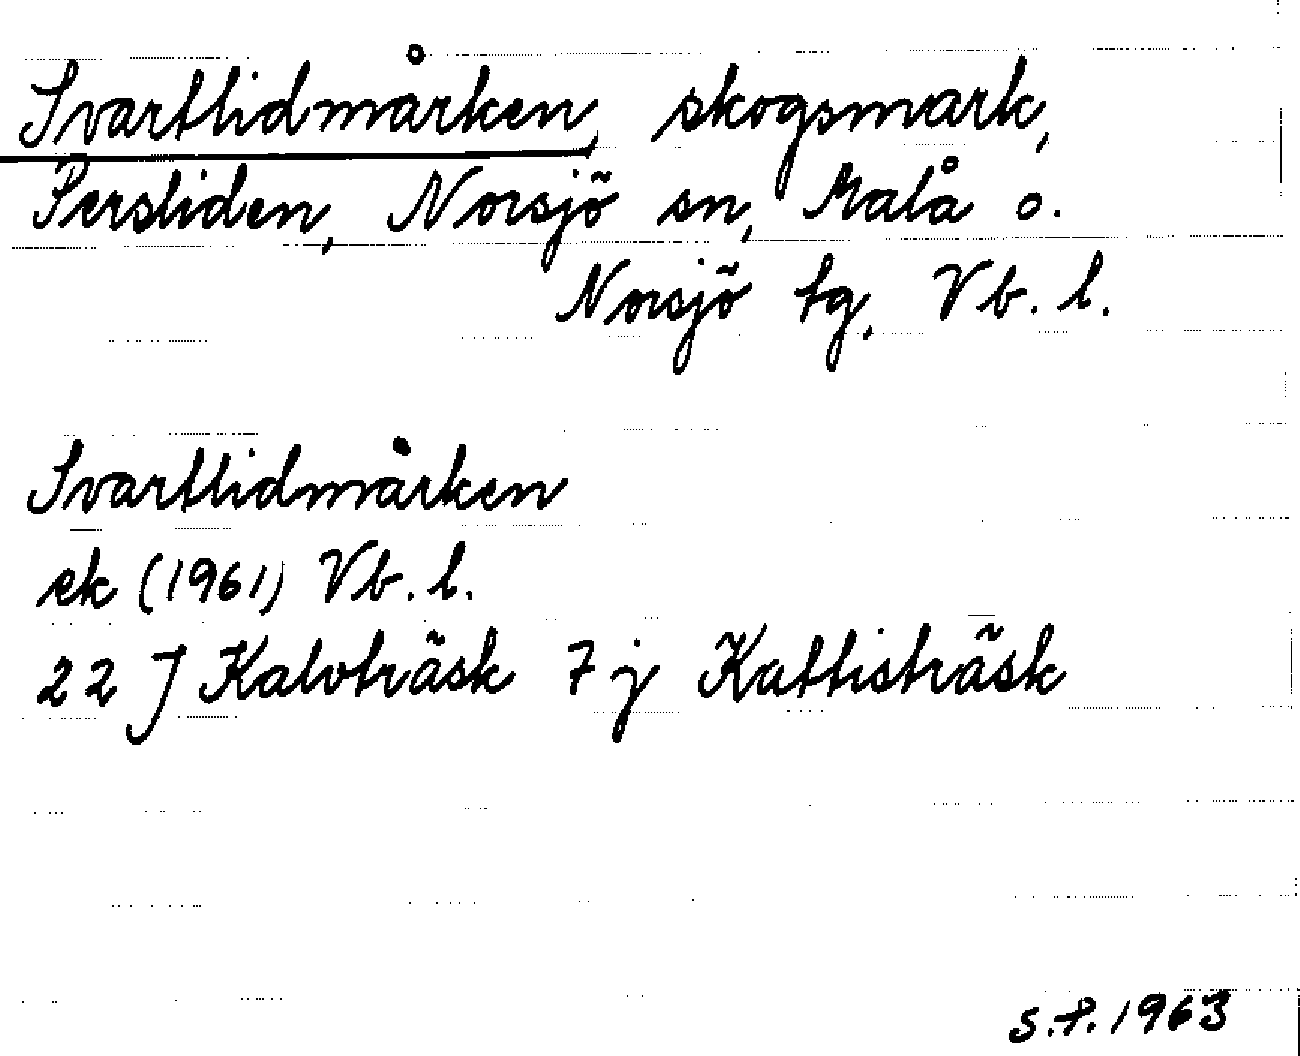 Svartlidmårken, skogsmark,
Persliden, Norsjö sn, Malå o.
Norsjö tg, Vb. l.
Svartlidmårken
ek (1961) Vb. l.
22 J Kalvträsk 7 j Kattisträsk
S.P. 1963